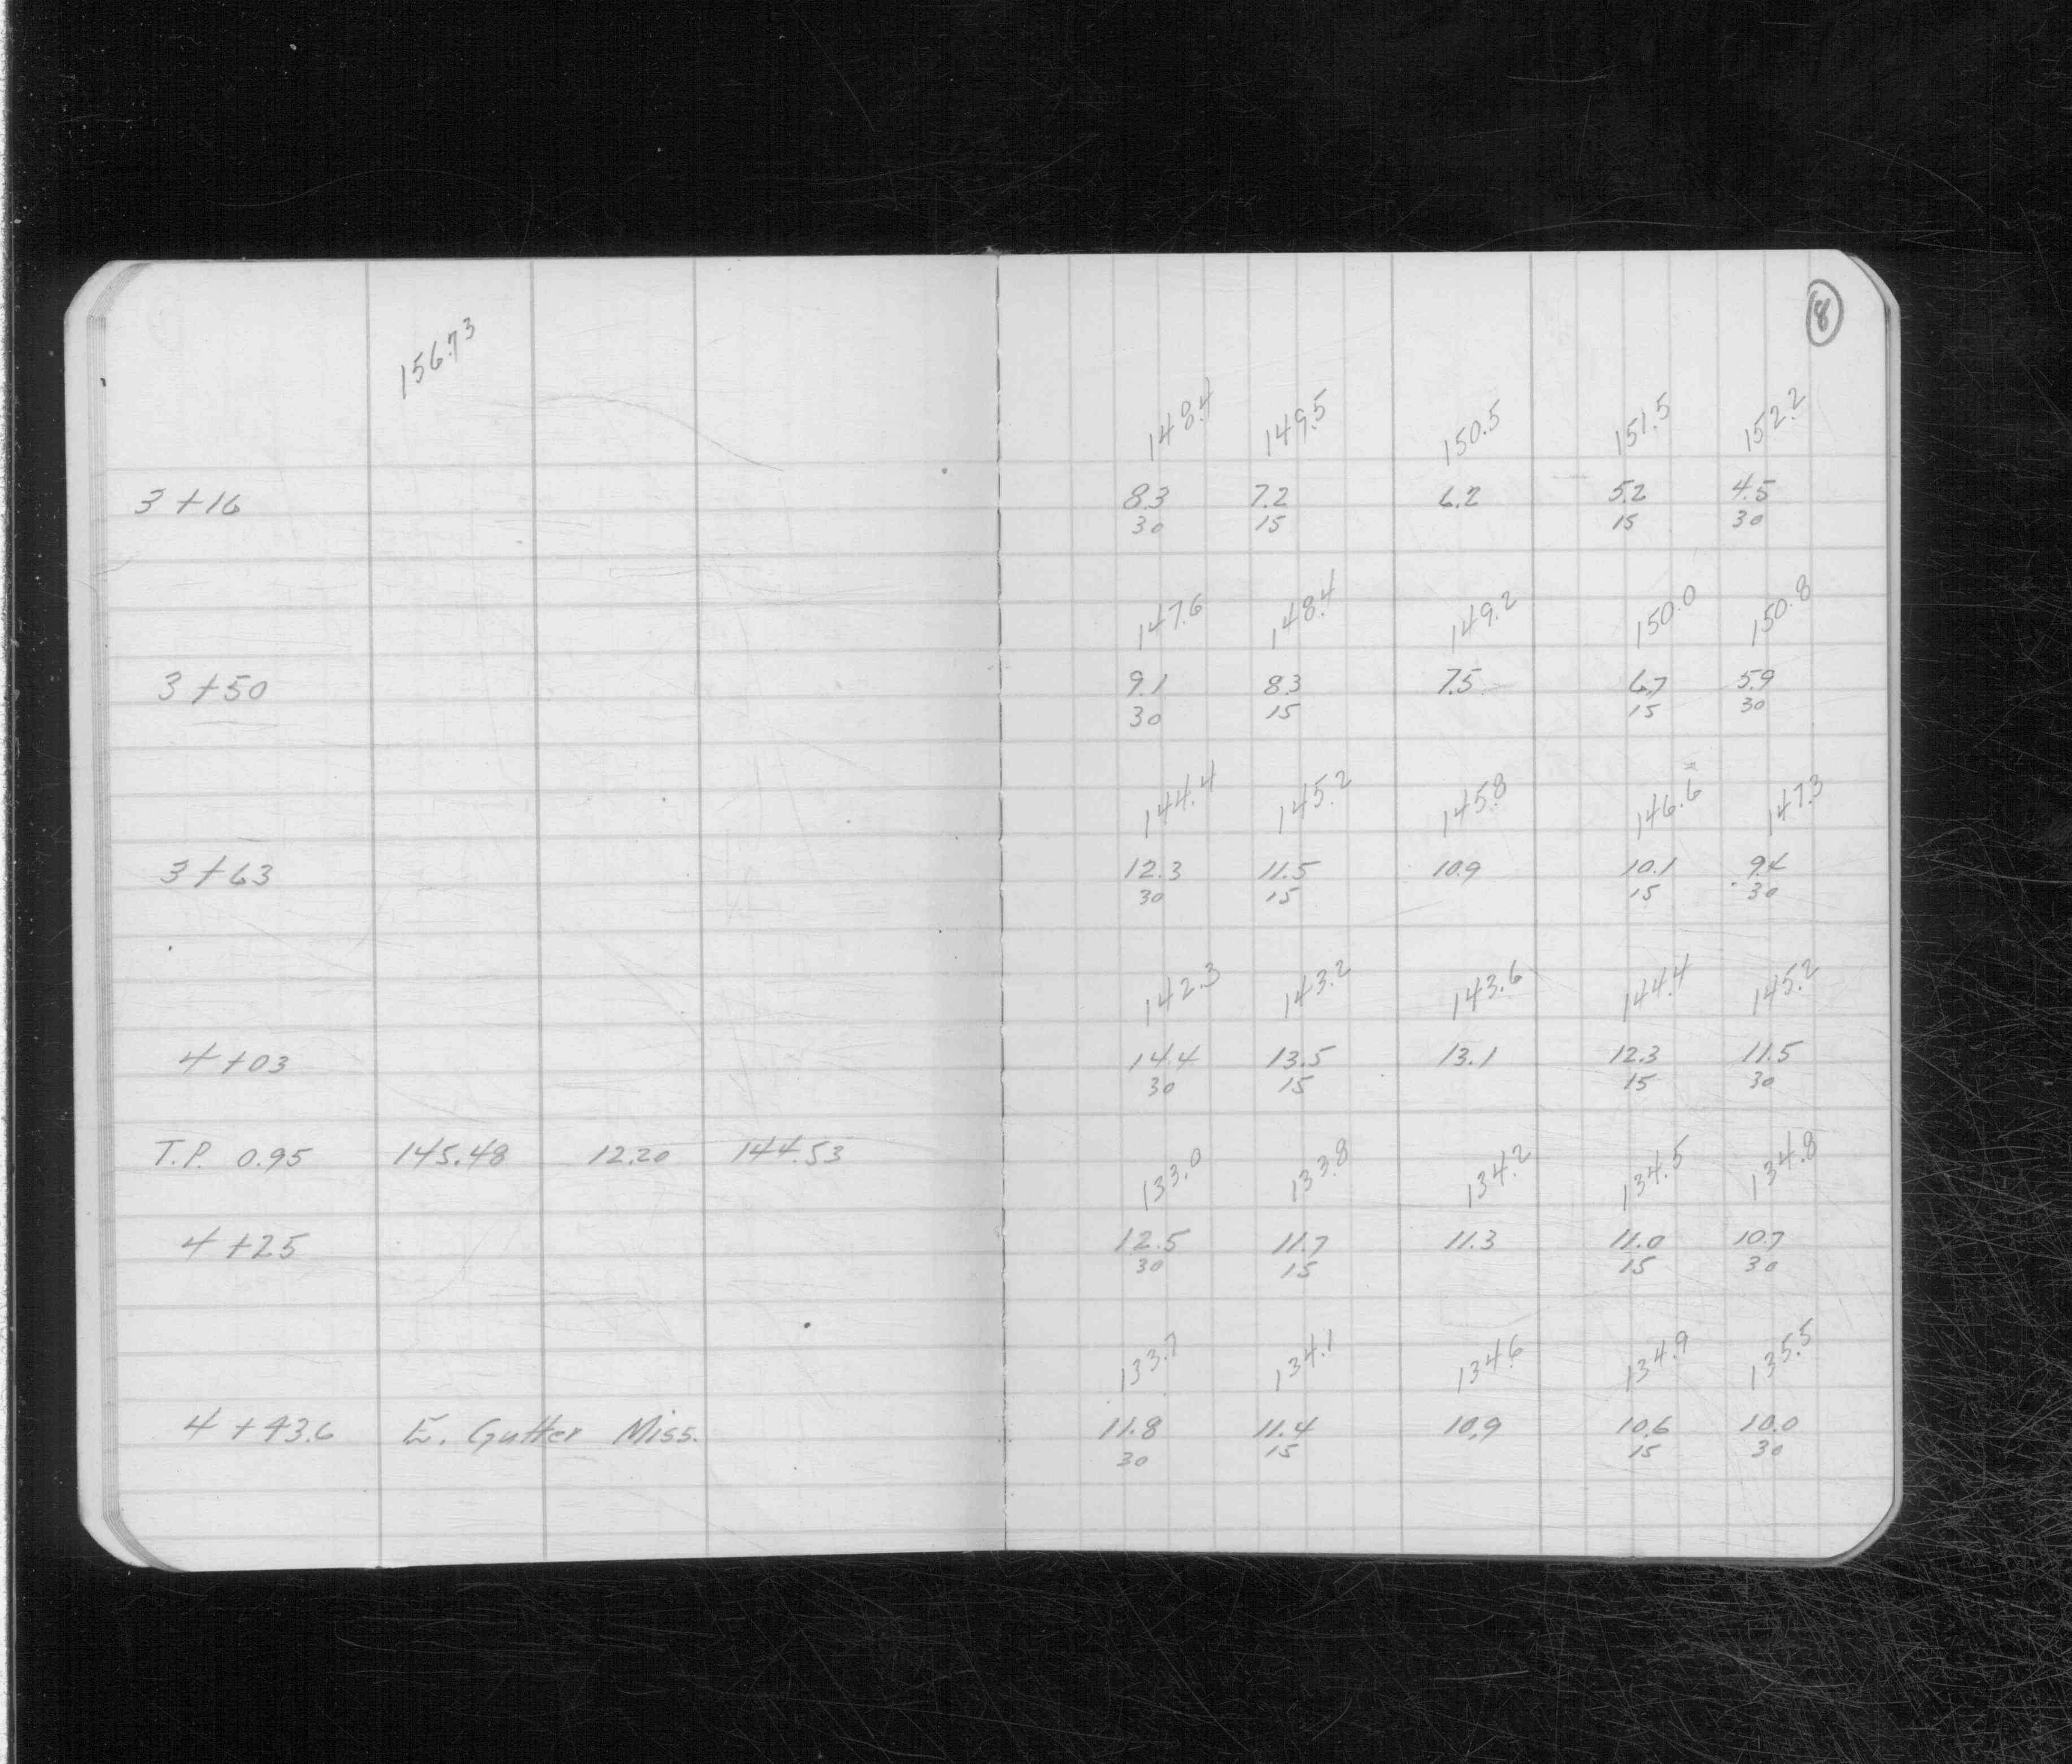 8
156.73
148.4 149.5 150.5 151.5 152.2
3+16 8.3 7.2 6.2 5.2 4.5
30 15 15 30
147.6 148.4 149.2 150.0 150.8
3+50 9.1 8.3 7.5 6.7 5.9
30 15 15 30
144.4 145.2 145.8 146.6 147.3
3+63 12.3 11.5 10.9 10.1 9.4
30 15 15 30
142.3 143.2 143.6 144.4 145.2
4+03 14.4 13.5 13.1 12.3 11.5
30 15 15 30
T.P. 0.95 145.48 12.20 144.53 133.0 133.8 134.2 134.5 134.8
4+25 12.5 11.7 11.3 11.0 10.7
30 15 15 30
133.7 134.1 134.6 134.9 135.5
4+43.6 E. Gutter Miss. 11.8 11.4 10.9 10.6 10.0
30 15 15 30